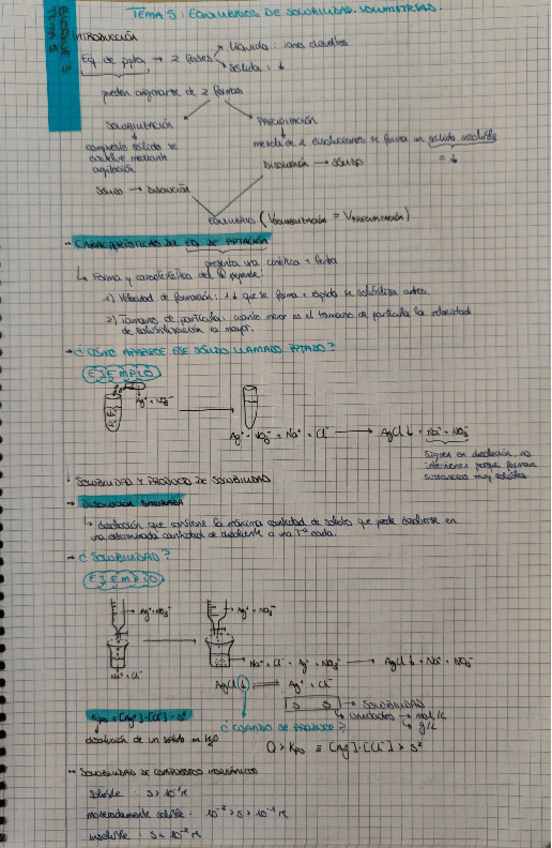 TEMA 5: EQUILIBRIOS DE SOLUBILIDAD. VOLUMETRÍAS.
BLOQUE 5
TEMA 5
INTRODUCCIÓN
Líquida: iones disueltos
Eq. de pptar → 2 fases
Sólida: ↓
pueden originarse de 2 formas
SOLUBILIZACIÓN
PRECIPITACIÓN
compuesto sólido se
disuelve mediante
agitación
mezcla de 2 disoluciones se forma un sólido insoluble
= ↓
DISOLUCIÓN → SÓLIDO
SÓLIDO → DISOLUCIÓN
EQUILIBRIO (VSOLUBILIZACIÓN = VPRECIPITACIÓN)
→ CARACTERÍSTICAS DEL EQ. DE PPTACIÓN
presenta una cinética + lenta
↳ Forma y características del depende:
1) Velocidad de formación: si ↓ que se forma + rápido se solubiliza antes.
2) Tamaño de partícula: cuanto menor es el tamaño de partícula la velocidad
de solubilización es mayor.
→ ¿CÓMO APARECE ESE SÓLIDO LLAMADO PPTADO?
EJEMPLO
Ag⁺ + NO₃⁻
Ag⁺ + NO₃⁻ + Na⁺ + Cl⁻ → AgCl ↓ + Na⁺ + NO₃⁻
Siguen en disolución, no
intervienen porque forman
sustancias muy solubles
SOLUBILIDAD Y PRODUCTO DE SOLUBILIDAD
→ DISOLUCIÓN SATURADA
↳ disolución que contiene la máxima cantidad de soluto que puede disolverse en
una determinada cantidad de disolvente a una Tª dada.
→ ¿SOLUBILIDAD?
EJEMPLO
Ag⁺ + NO₃⁻
Ag⁺ + NO₃⁻
Na⁺ + Cl⁻
Na⁺ + Cl⁻ + Ag⁺ + NO₃⁻ → AgCl ↓ + Na⁺ + NO₃⁻
AgCl ↓ ⇌ Ag⁺ + Cl⁻
S S → SOLUBILIDAD
↳ unidades → mol/L
→ g/L
Kps = [Ag⁺]·[Cl⁻] = S²
disolución de un sólido en H₂O
¿CUANDO SE PRODUCE?
Q > Kps = [Ag⁺]·[Cl⁻] > S²
→ SOLUBILIDAD DE COMPUESTOS INORGÁNICOS
soluble: S > 10⁻¹ M
moderadamente soluble: 10⁻² > S > 10⁻¹ M
insoluble: S < 10⁻² M